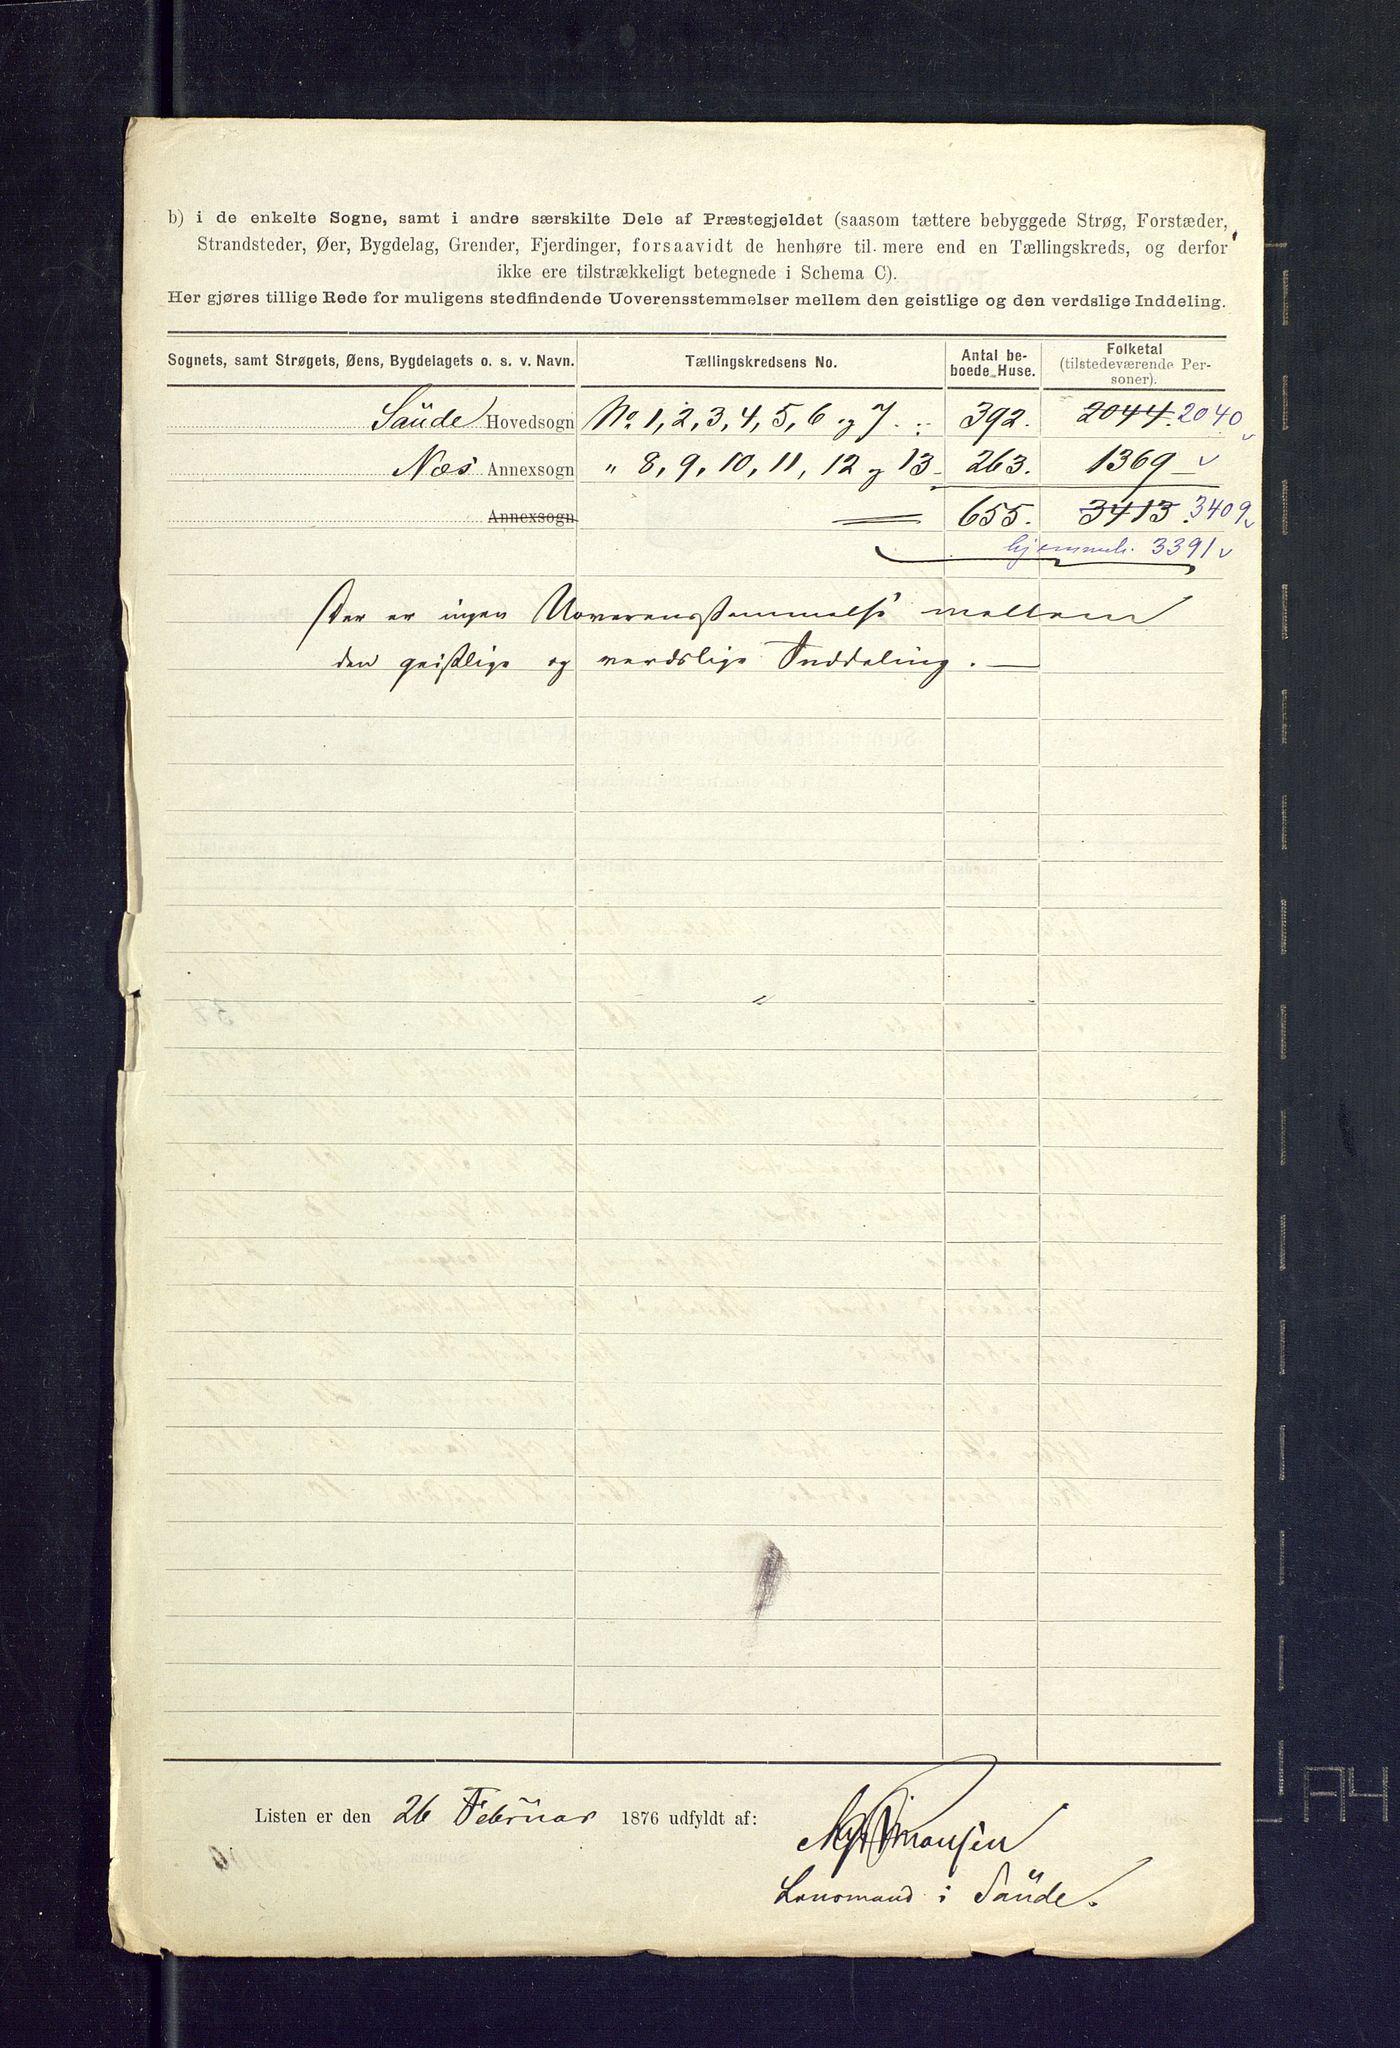 b) i de enkelte Sogne, samt i andre særskilte Dele af Præstegjeldet (saasom tættere bebyggede Strøg, Forstæder,
Strandsteder, Øer, Bygdelag, Grender, Fjerdinger, forsaavidt de henhøre til mere end en Tællingskreds, og derfor
ikke ere tilstrækkeligt betegnede i Schema C).
Her gjøres tillige Rede for muligens stedfindende Uoverensstemmelser mellem den geistlige og den verdslige Inddeling.
Sognets, samt Strøgets, Øens, Bygdelagets o. s. v. Navn. Tællingskredsens No. Antal beboede Huse. Folketal (tilstedeværende Personer).
Saüde Hovedsogn No. 1, 2, 3, 4, 5, 6 og 7. 392. 2044. 2040
Næs Annexsogn " 8, 9, 10, 11, 12 og 13 263. 1369
Annexsogn 655. 3413. 3409
hjemmeh. 3391
Der er ingen Uoverensstemmelse mellem
den geistlige og verdslige Inddeling.
Listen er den 26 Februar 1876 udfyldt af:
Lensmand i Saüde.